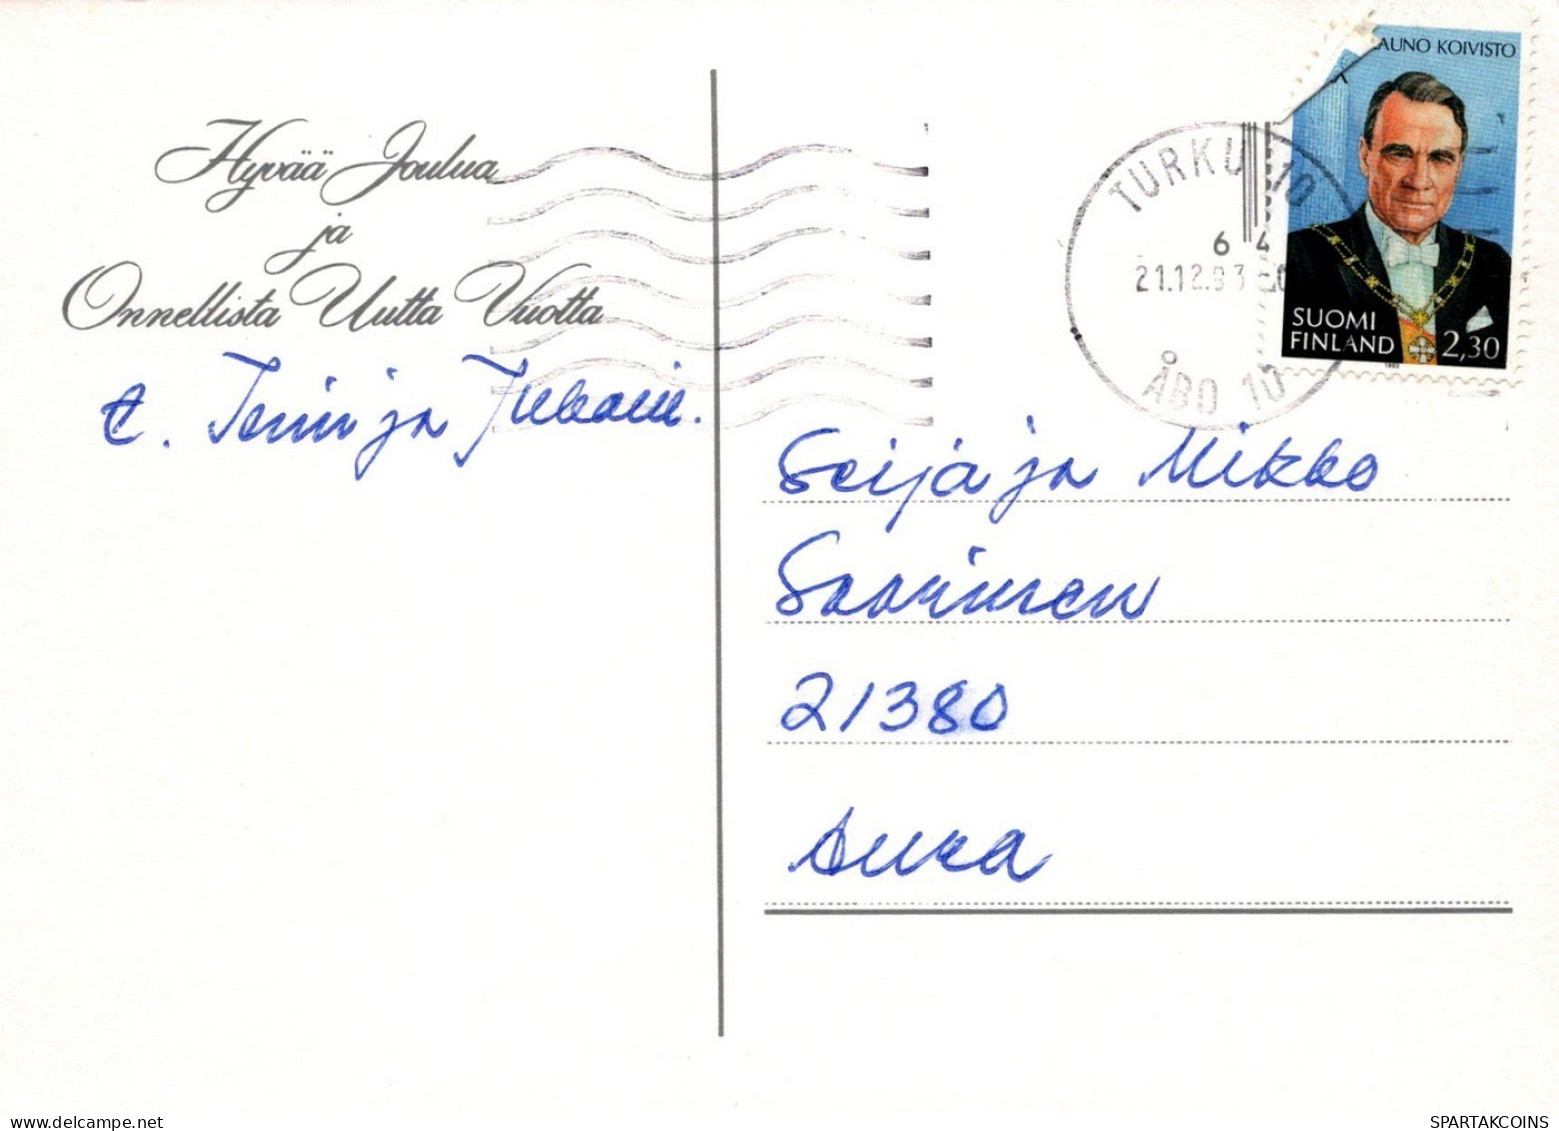 Hyvää Joulua
ja
Onnellista Uutta Vuotta
t. Temi ja Juhani.
AUNO KOIVISTO
SUOMI
FINLAND 2,30
1993
TURKU 10
6 4
21.12.93
ÅBO 10
Seija ja Mikko
Saarinen
21380
Aura
SPARTAKCOINS